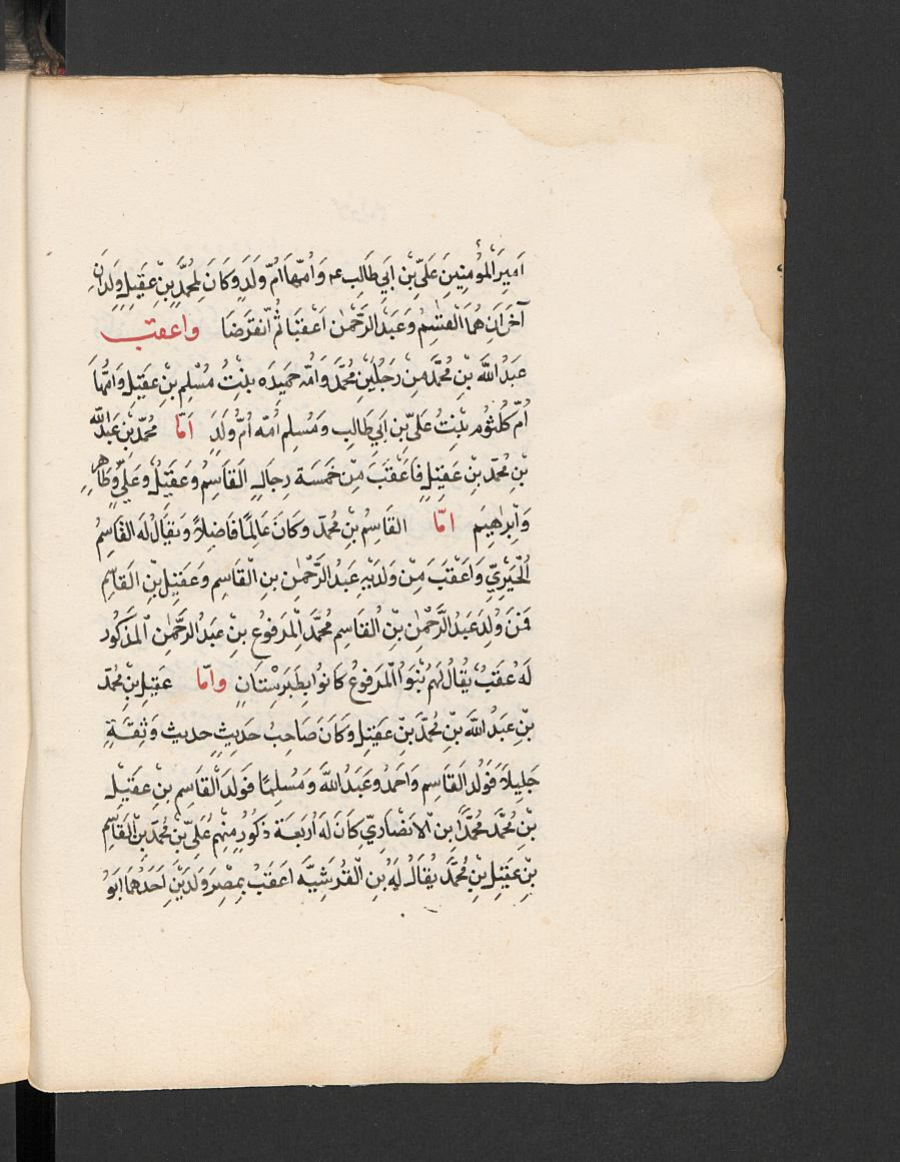 اَمِيرَ الْمُؤْمِنِينَ عَلَىِّ بْنِ اَبِي طَالِبٍ عه وَاُمّهَا اُمّ وَلَدٍ وَكَانَ لِمُحَمَّدِ بْنِ عَقِيلٍ وَلَدَانِ
آخَرَانِ هُمَا الْقَسِٰمُ وَعَبْدُ الرَّحْمٰنِ اَعْقَبَا ثُمَّ انْقَرَضَا واعقب
عَبْدُ اللّٰه بْنِ مُحَمَّد مِنْ رَجُلَيْنِ مُحَمَّد وَامّه حَمِيدَه بِنْتُ مُسْلِم بْنِ عَقِيل وَامّهَا
اُمّ كُلْثُوم بِنْتُ عَلَىّ بْنِ اَبِي طَالِب وَمُسْلِم اُمّه اُمّ وَلَدٍ اَمّا مُحَمَّد بْنِ عَبْدُ اللّٰه
بْنِ مُحَمَّد بْنِ عَقِيلٍ فَاَعْقَبَ مِنْ خَمْسَة رِجَالٍ اَلقَاسِمُ وَعَقِيلُ وَعَلِىٌّ وَطَاهِر
وَاِبْرٰهِيَم امّا القَاسِمُ بْنِ مُحَمّد وَكَانَ عَالِمًا فَاضِلاً وَيُقَالُ لَه القَاسِمُ
اَلْخَيْرِيِّ وَاَعْقَبَ مِنْ وَلَدَيْهِ عَبْدُ الرَّحْمٰنِ بنِ الْقَاسِمِ وَعَقِيلِ بْنِ القَاسِمِ
فَمَنَ وُلِدَ عَبْدُ الرَّحْمٰنِ بْنِ الْقَاسِمِ مُحَمَّدَ الْمَرفوعُ بنِ عَبْدُ الرَّحْمٰنِ المَذكُور
لَهُ عَقَبُ يُقَالُ لَهُمْ بَنَوُا الْمَرفوعُ كَانُوا بِطَبَرِسْتَان وامّا عَقِيلِ بْنِ مُحَمّد
بْنِ عَبْدُ اللّٰه بْنِ مُحَمَّد بْنِ عَقِيلٍ وَكَانَ صَاحِبُ حَدِيثٍ حديث وَثِقَةٍ
جَلِيلاً فَوَلَدَ القَاسِمِ وَاحْمَدُ وَعَبْدُ اللّٰه وَمُسْلِمًا فَوَلَدَ الْقَاسِمِ بنِ عَقِيْلٍ
بْنِ مُحَمَّد مُحَمَّدًا بنِ الْاَنْصَارِيّ كَانَ لَهُ اَرْبَعَة ذُكُورٍ مِنْهُم عَلَىِّ بْنِ مُحَمّدِ بْنِ الْقَاسِمِ
بْنِ عَقِيْلِ بْنِ مُحَمَّد يُقَالُ لَهُ بْنِ الْقُرَشِيَّه اَعْقَبُ بِمِصْرَ وَلَدَيْنِ اَحَدُهُمَا اَبَوُ